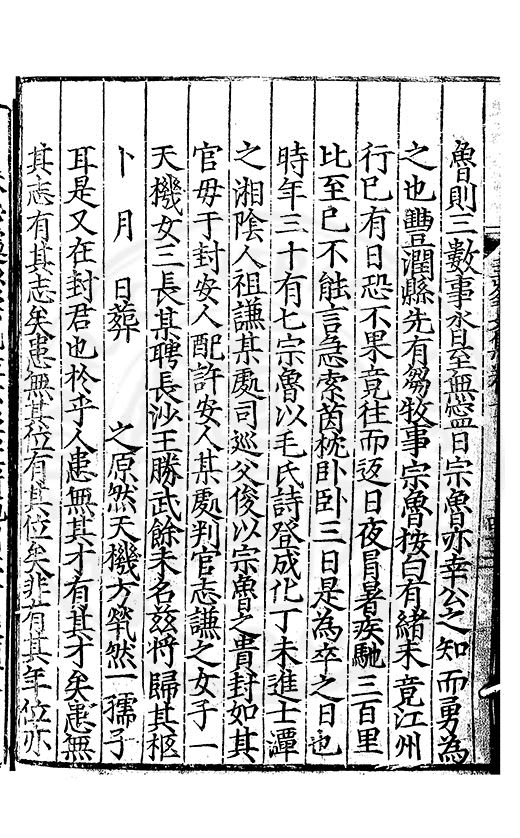 魯則三數事沓至無窰日宗魯亦幸公之知而勇為
之也豐潤縣先有芻牧事宗魯按白有緒未竟江州
行已有日恐不果竟往而返日夜冐暑疾馳三百里
比至已不能言急索茵枕卧三日是為卒之日也
時年三十有七宗魯以毛氏詩登成化丁未進士潭
之湘陰人祖謙某處司巡父俊以宗魯之貴封如其
官毋于封安人配許安人某處判官志謙之女子一
天機女三長某聘長沙王勝武餘未名兹將歸其柩
卜　月　日葬　　　之原然天機方煢然一孺子
耳是又在封君也於乎人患無其才有其才矣患無
其志有其志矣患無其位有其位矣非有其年位亦